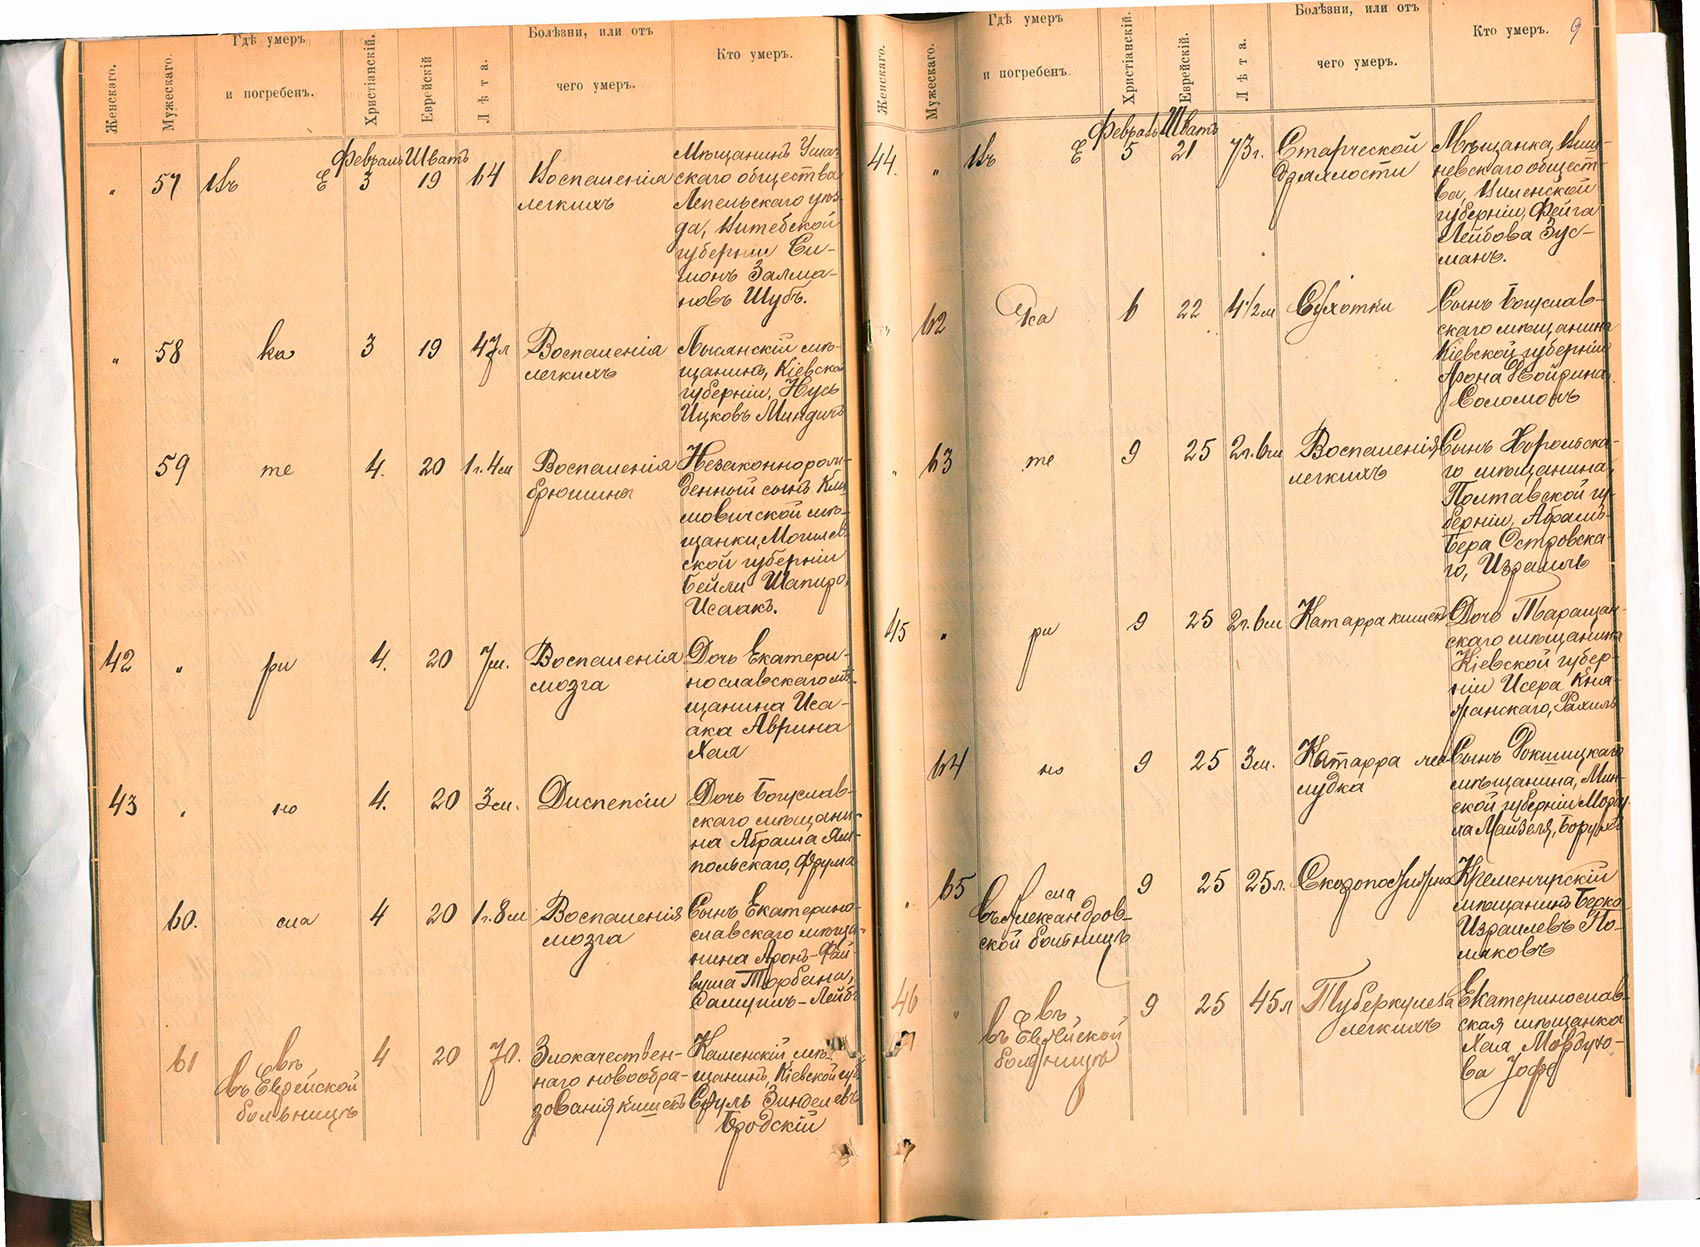 Женскаго.
Мужескаго.
Гдѣ умеръ
и погребенъ.
Христіанскій.
Еврейскій
Лѣта.
Болѣзни, или отъ
чего умеръ.
Кто умеръ.
Февраль Шватъ
" 57 Въ Е 3 19 64
Воспаленія
легкихъ
Мѣщанинъ Ушач-
скаго общества
Лепельскаго уѣз-
да, Витебской
губерніи Си-
монъ Залма-
новъ Шубъ.
" 58 ка 3 19 47л
Воспаленія
легкихъ
Лысянскій мѣ-
щанинъ, Кіевской
губерніи, Нусь
Ицковъ Миндичъ
59 те 4. 20 1г.4м
Воспаленія
брюшины
Незаконнорож-
денный сынъ Кли-
мовичской мѣ-
щанки, Могилев-
ской губерніи
Бейли Шапиро,
Исаакъ.
42 " ри 4. 20 7м.
Воспаленія
мозга
Дочь Екатери-
нославскаго мѣ-
щанина Иса-
ака Аврина
Хая
43 " но 4. 20 3м.
Диспепсіи
Дочь Богуслав-
скаго мѣщани-
на Абрама Ям-
польскаго, Фрума
60. сла 4 20 1г.8м
Воспаленія
мозга
Сынъ Екатерино-
славскаго мѣща-
нина Аронъ-Фай-
вуша Торбана,
Самуилъ-Лейбъ
61 въ 4 20 70.
въ Еврейской
больницѣ
Злокачествен-
наго новообра-
зованія кишекъ
Каменскій мѣ-
щанинъ, Кіевской губ
Сруль Зинделевъ
Бродскій
Женскаго.
Мужескаго.
Гдѣ умеръ
и погребенъ.
Христіанскій.
Еврейскій.
Лѣта.
Болѣзни, или отъ
чего умеръ.
Кто умеръ. 9
Февраль Шватъ
44. " Въ Е 5 21 73г.
Старческой
дряхлости
Мѣщанка, Виш-
невскаго общест-
ва, Виленской
губерніи, Фейга
Лейбова Зус-
манъ.
" 62 Ка 6 22 4 1/2м
Сухотки
Сынъ Богуслав-
скаго мѣщанина
Кіевской губерніи
Арона Койрина,
Соломонъ
" 63 те 9 25 2г.6м
Воспаленія
легкихъ
Сынъ Хорольска-
го мѣщанина,
Полтавской гу-
берніи, Абрамъ-
Бера Островска-
го, Израиль
45 " ри 9 25 2г.6м
Катарра кишекъ
Дочь Таращан-
скаго мѣщанина
Кіевской губер-
ніи Исера Кня-
жанскаго, Рахиль
64 но 9 25 3м.
Катарра же-
лудка
Сынъ Докшицкаго
мѣщанина, Мин-
ской губерніи
Майзеля, Борухъ
" 65 сла 9 25 25л.
въ Александров-
ской больницѣ
Кременчугскій
мѣщанинъ Берко
Израилевъ По-
ляковъ
46 " въ 9 25 45л
въ Еврейской
больницѣ
Туберкулеза
легкихъ
Екатеринослав-
ская мѣщанка
Хая Мордухо-
ва Іофе